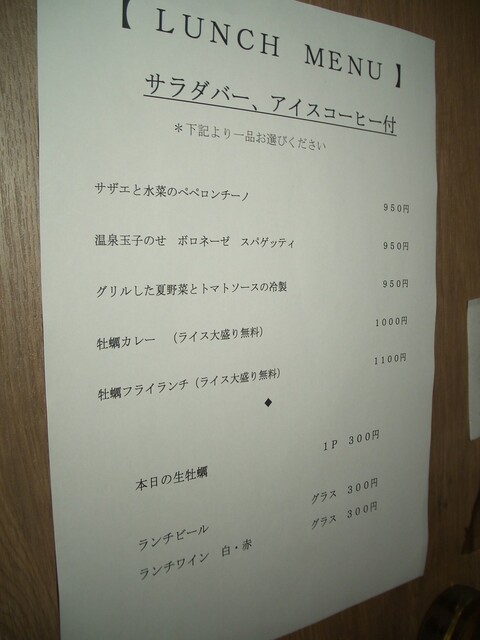 【 LUNCH MENU 】
サラダバー、アイスコーヒー付
＊下記より一品お選びください
サザエと水菜のペペロンチーノ 950円
温泉玉子のせ ボロネーゼ スパゲッティ 950円
グリルした夏野菜とトマトソースの冷製 950円
牡蠣カレー (ライス大盛り無料) 1000円
牡蠣フライランチ(ライス大盛り無料) 1100円
◆
本日の生牡蠣 1P 300円
ランチビール グラス 300円
ランチワイン 白・赤 グラス 300円